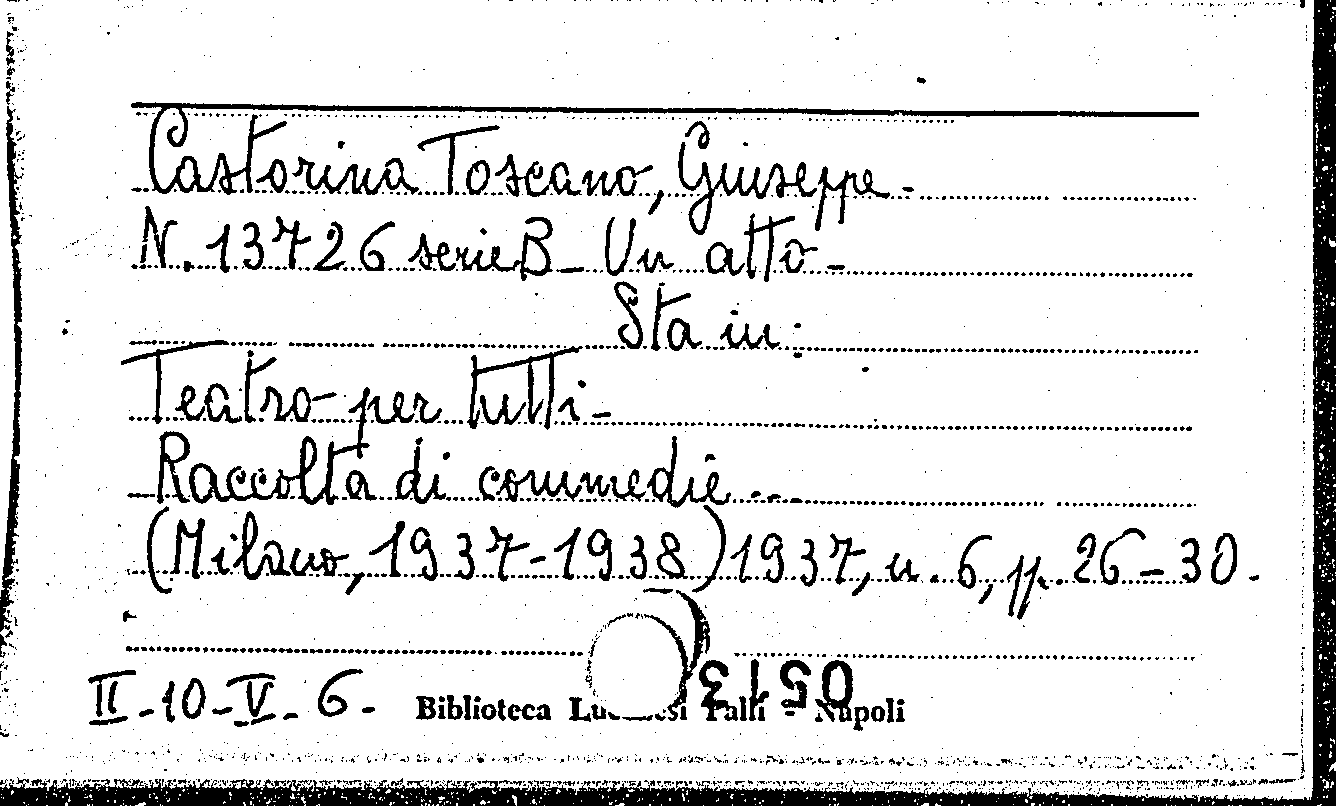 Castorina Toscano, Giuseppe -
N. 13726 serie B - Un atto -
Sta in:
Teatro per tutti -
Raccolta di commedie ...
(Milano, 1937-1938) 1937, n. 6, pp. 26-30.
II-10-V-6- Biblioteca Lucchesi Palli - Napoli
0513